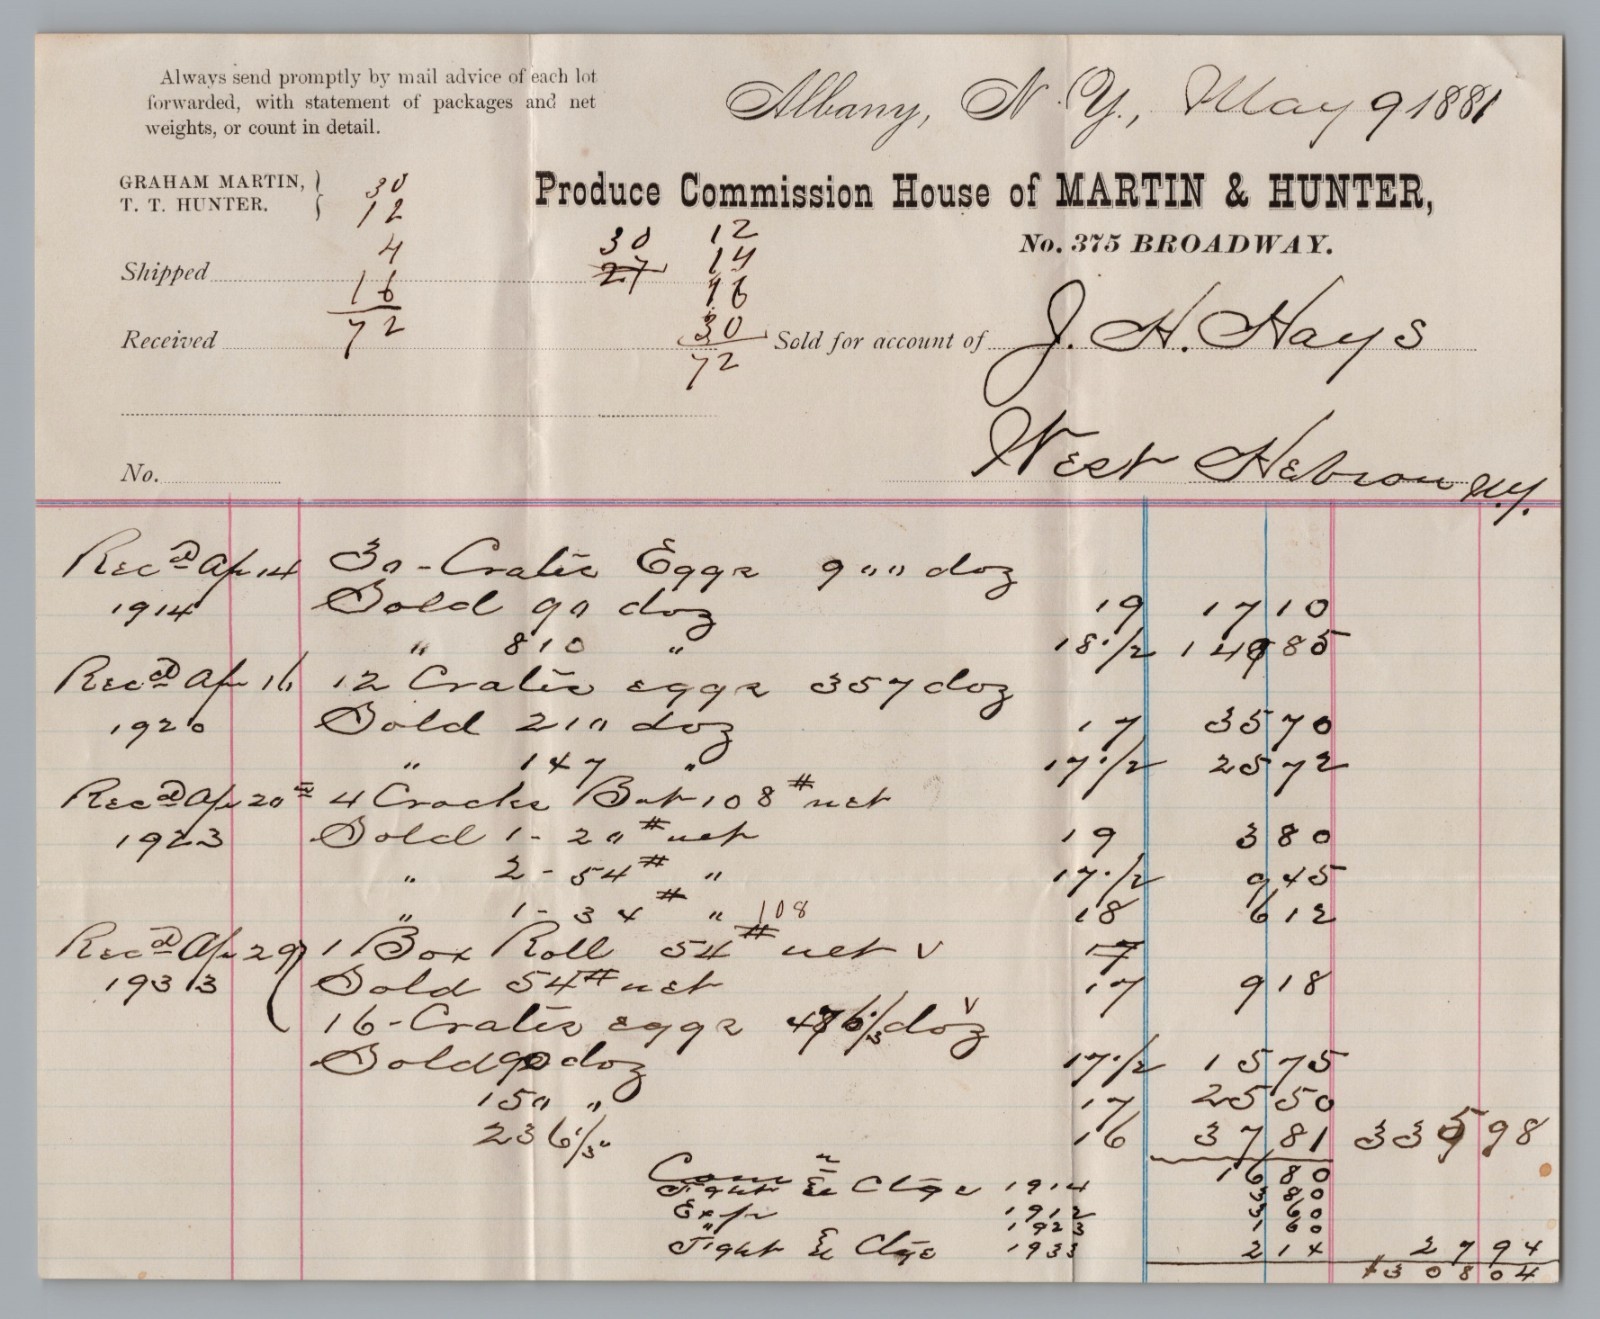 Always send promptly by mail advice of each lot
forwarded, with statement of packages and net
weights, or count in detail.
Albany, N. Y., May 9 1881
GRAHAM MARTIN,
T. T. HUNTER.
30
12
4
16
72
Produce Commission House of MARTIN & HUNTER,
No. 375 BROADWAY.
30
27
12
14
16
30
72
Shipped
Received
Sold for account of J. H. Hays
West Hebron N.Y.
No.
Recd Ap 14 30 - Crates Eggs 900 doz
1914 Sold 90 doz 19 17 10
" 810 " 18 1/2 149 85
Recd Ap 16 12 Crates eggs 357 doz
1920 Sold 210 doz 17 35 70
" 147 " 17 1/2 25 72
Recd Ap 20th 4 Crocks But 108 # net
1923 Sold 1 - 20 # net 19 3 80
" 2 - 54 # " 17 1/2 9 45
" 1 - 34 # " 108 18 6 12
Recd Ap 29 1 Box Roll 54 # net v 17
1933 Sold 54 # net 17 9 18
16 - Crates eggs 476 1/3 doz v
Sold 90 doz 17 1/2 15 75
150 " 17 25 50
236 1/3 " 16 37 81 335 98
Comn 16 80
Fight & Chge 1914 3 80
Exp 1912 3 60
" 1923 1 60
Fight & Chge 1933 2 14 27 94
308 04